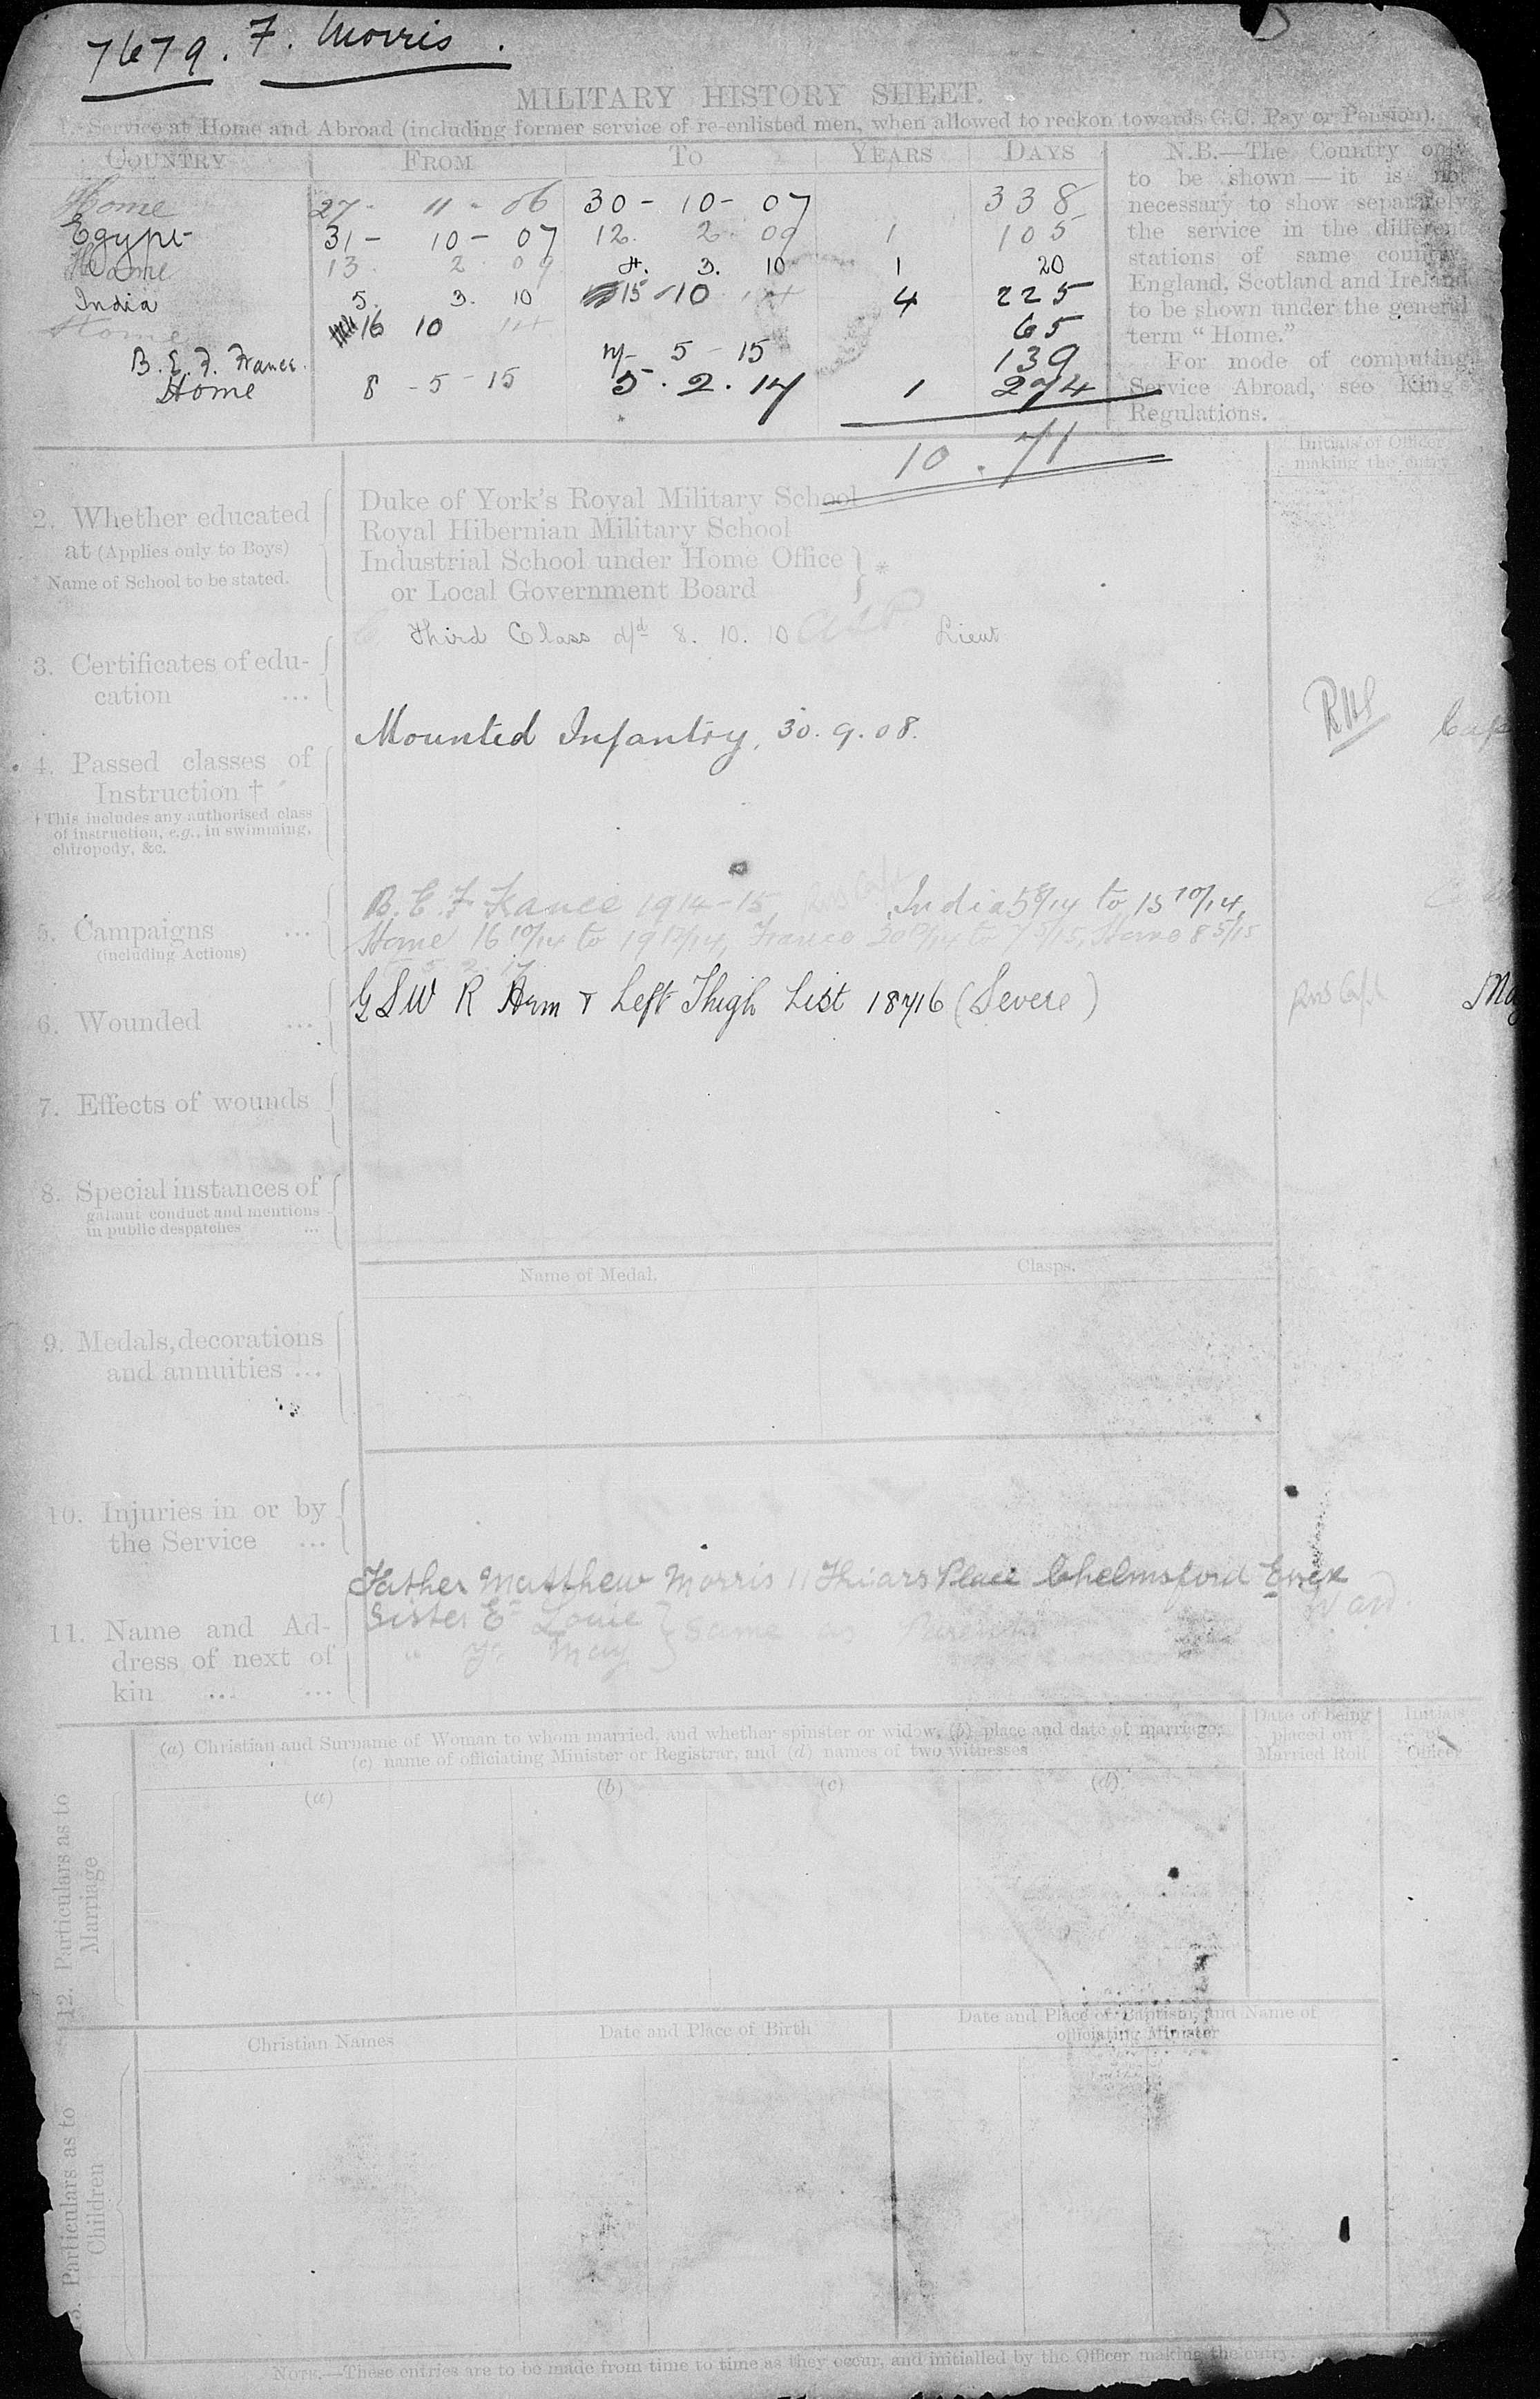 7679. F. Morris.
MILITARY HISTORY SHEET.
1.-Service at Home and Abroad (including former service of re-enlisted men, when allowed to reckon towards G.C. Pay or Pension).
COUNTRY FROM TO YEARS DAYS
Home 27- 11- 06 30- 10- 07 338
Egypt 31- 10- 07 12. 2. 09 1 105
Home 13. 2. 09 4. 3. 10 1 20
India 5. 3. 10 15 10 14 4 225
Home 16 10 14 65
B. E. F. France. 7- 5- 15 139
Home 8 -5-15 5. 2. 17 1 274
10. 71
N.B.—The Country only
to be shown—it is not
necessary to show separately
the service in the different
stations of same country.
England, Scotland and Ireland
to be shown under the general
term “Home.”
For mode of computing
Service Abroad, see King's
Regulations.
Initials of Officer
making the entry
2. Whether educated
at (Applies only to Boys)
Name of School to be stated.
Duke of York's Royal Military School
Royal Hibernian Military School
Industrial School under Home Office
or Local Government Board } *
3. Certificates of edu-
cation ...
Third Class d/d 8. 10. 10 Lieut
4. Passed classes of
Instruction †
† This includes any authorised class
of instruction, e.g., in swimming,
chiropody, &c.
Mounted Infantry, 30. 9. 08.
5. Campaigns ...
(including Actions)
B. E. F. France 1914-15 India 5 8/14 to 15 10/14,
Home 16 10/14 to 19 12/14, France 20 12/14 to 7 5/15, Home 8 5/15
5 2 17
6. Wounded ...
G S W R Arm & Left Thigh List 18716 (Severe)
7. Effects of wounds
8. Special instances of
gallant conduct and mentions
in public despatches ...
Name of Medal. Clasps.
9. Medals, decorations
and annuities ...
10. Injuries in or by
the Service ...
11. Name and Ad-
dress of next of
kin ... ...
Father Matthew Morris 11 Friars Place Chelmsford Essex
Sister E Louie } Same as Parents
" Y May
12. Particulars as to
Marriage
(a) Christian and Surname of Woman to whom married, and whether spinster or widow, (b) place and date of marriage,
(c) name of officiating Minister or Registrar, and (d) names of two witnesses
Date of being
placed on
Married Roll
Initials
of
Officer
(a) (b) (c) (d)
Particulars as to
Children
Christian Names Date and Place of Birth
Date and Place of Baptism, and Name of
officiating Minister
NOTE.—These entries are to be made from time to time as they occur, and initialled by the Officer making the entry.